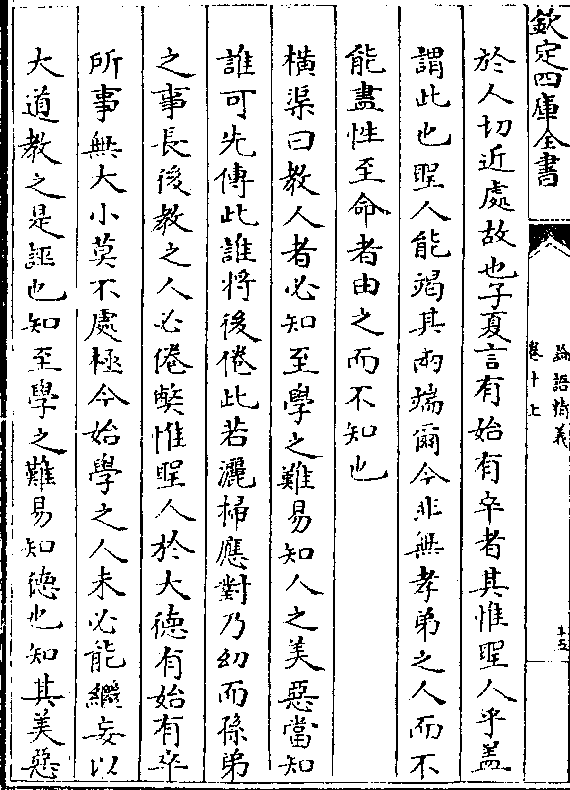 欽定四庫全書
論語精義
卷十上
十五
於人切近處故也子夏言有始有卒者其惟聖人乎盖
謂此也聖人能竭其兩端爾今非無孝弟之人而不
能盡性至命者由之而不知也
橫渠曰教人者必知至學之難易知人之美惡當知
誰可先傳此誰將後倦此若灑掃應對乃幼而孫弟
之事長後教之人必倦弊惟聖人於大德有始有卒
所事無大小莫不處極今始學之人未必能繼妄以
大道教之是誣也知至學之難易知德也知其美惡